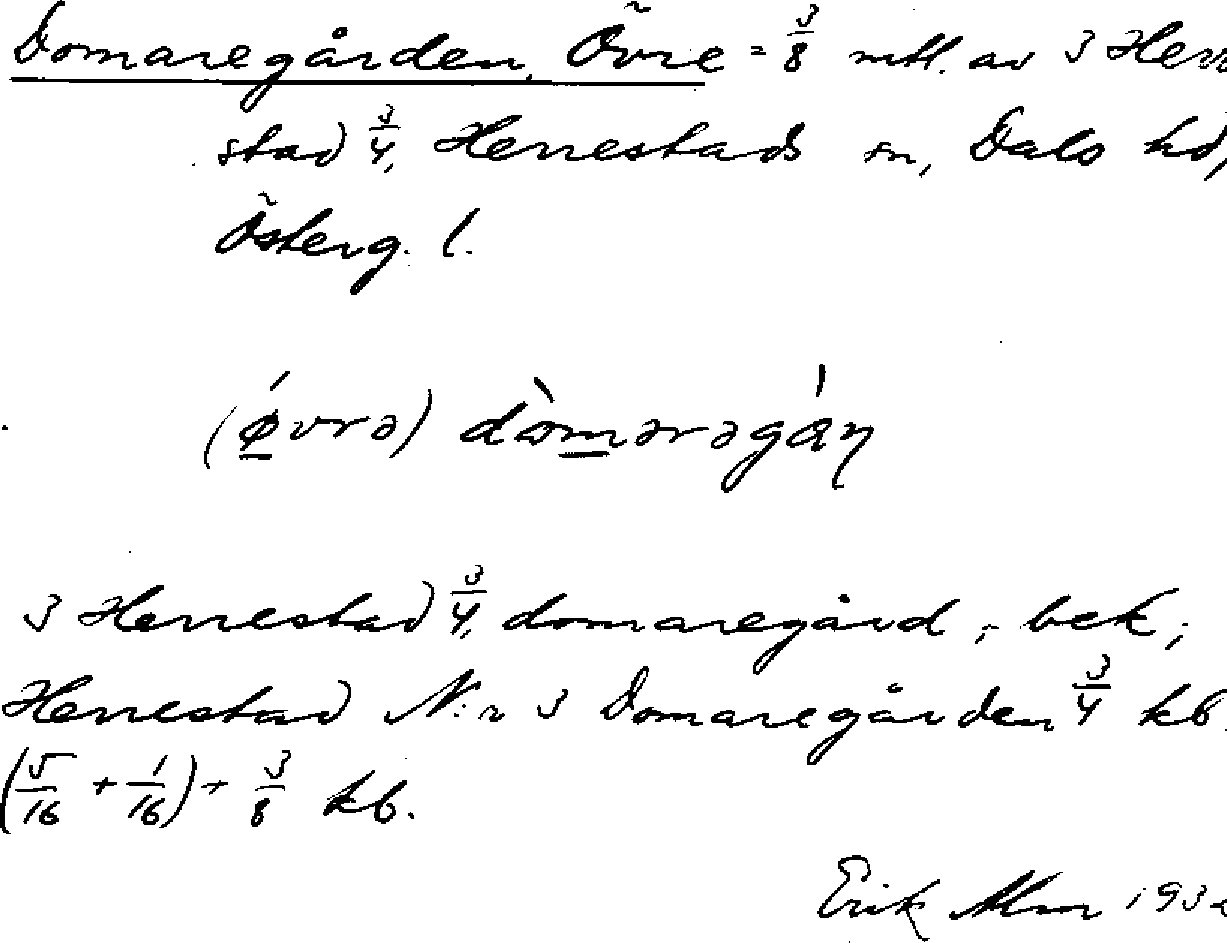 Domaregården, Övre = 3/8 mtl. av 3 Herre
stad 3/4, Herrestads sn, Dals hd,
Österg. l.
(ǿvrə) dὼmərəgáɳ
3 Herrestad 3/4, domaregård, bek;
Herrestad N:r 3 Domaregården 3/4 kb.
(5/16 + 1/16) + 3/8 kb.
Erik Alm